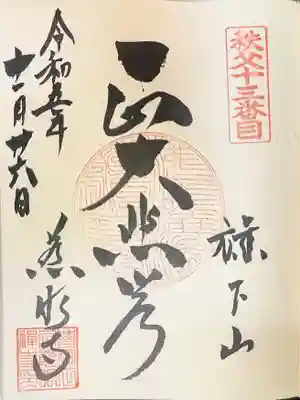 秩父十三番目
旗下山
大悲
慈眼寺
令和五年
十一月廿六日